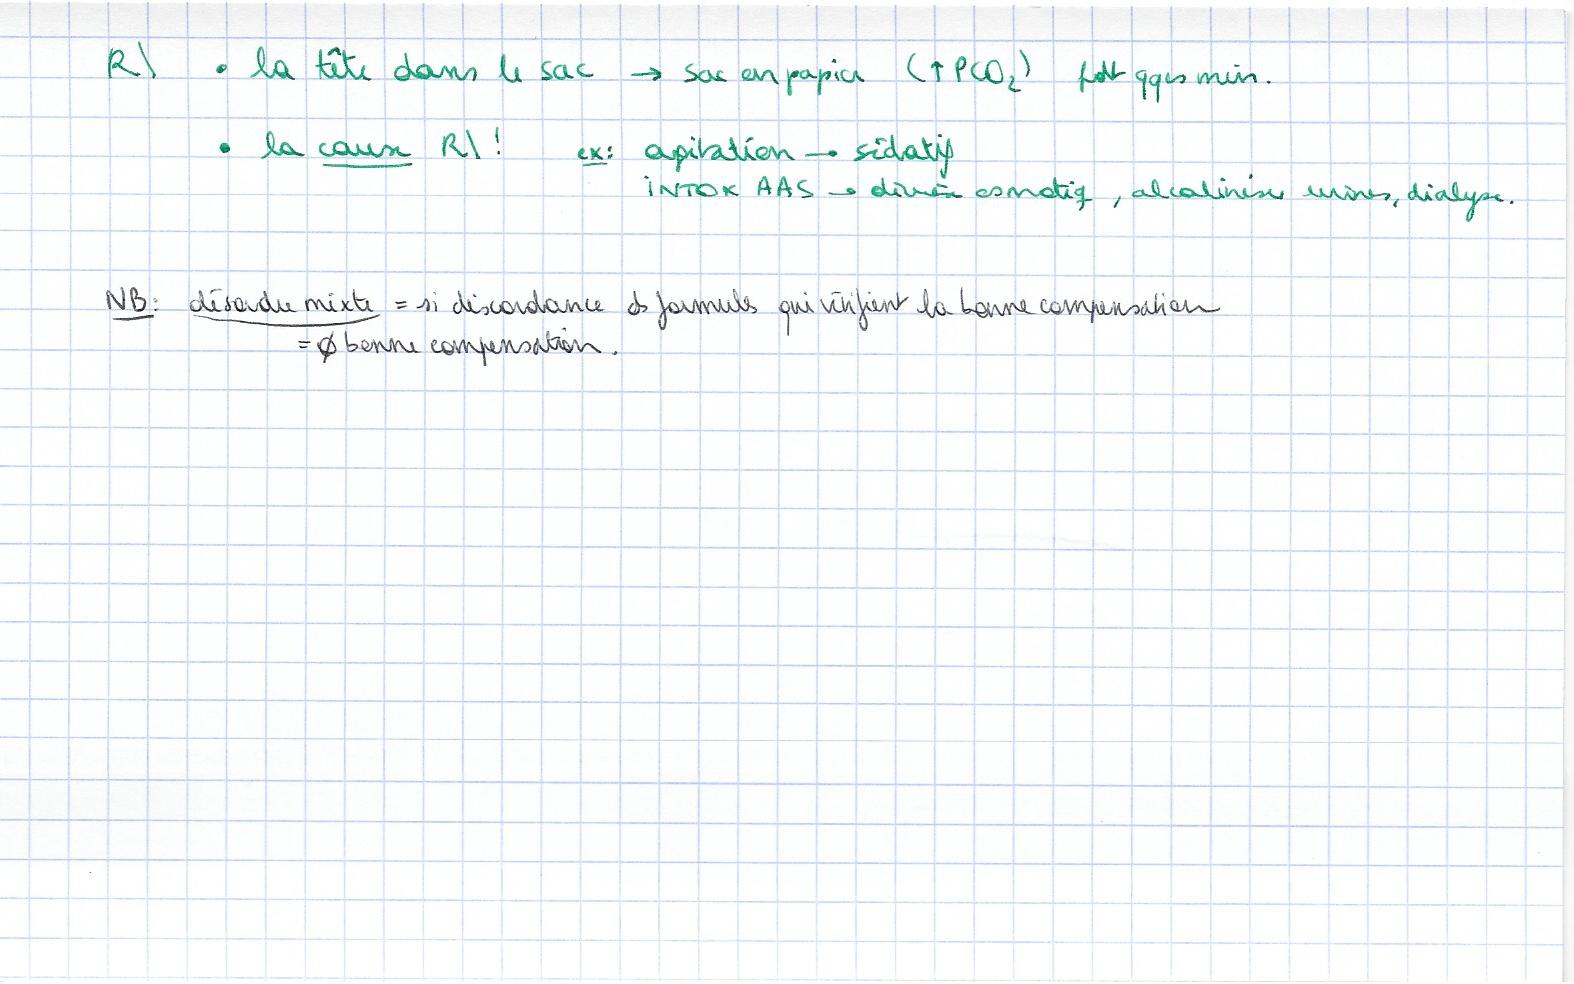 R\ • la tête dans le sac → sac en papier (↑PCO₂) pdt qqes min.
• la cause R\! ex: agitation → sédatif
INTOX AAS → diurèse osmotiq, alcaliniser urines, dialyse.
NB: désordre mixte = si discordance ds formules qui vérifient la bonne compensation
= ∅ bonne compensation.